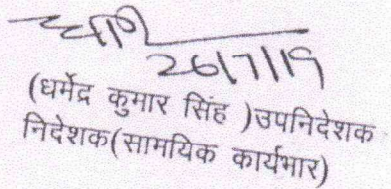 26/7/19
(धर्मेद्र कुमार सिंह )उपनिदेशक
निदेशक(सामयिक कार्यभार)